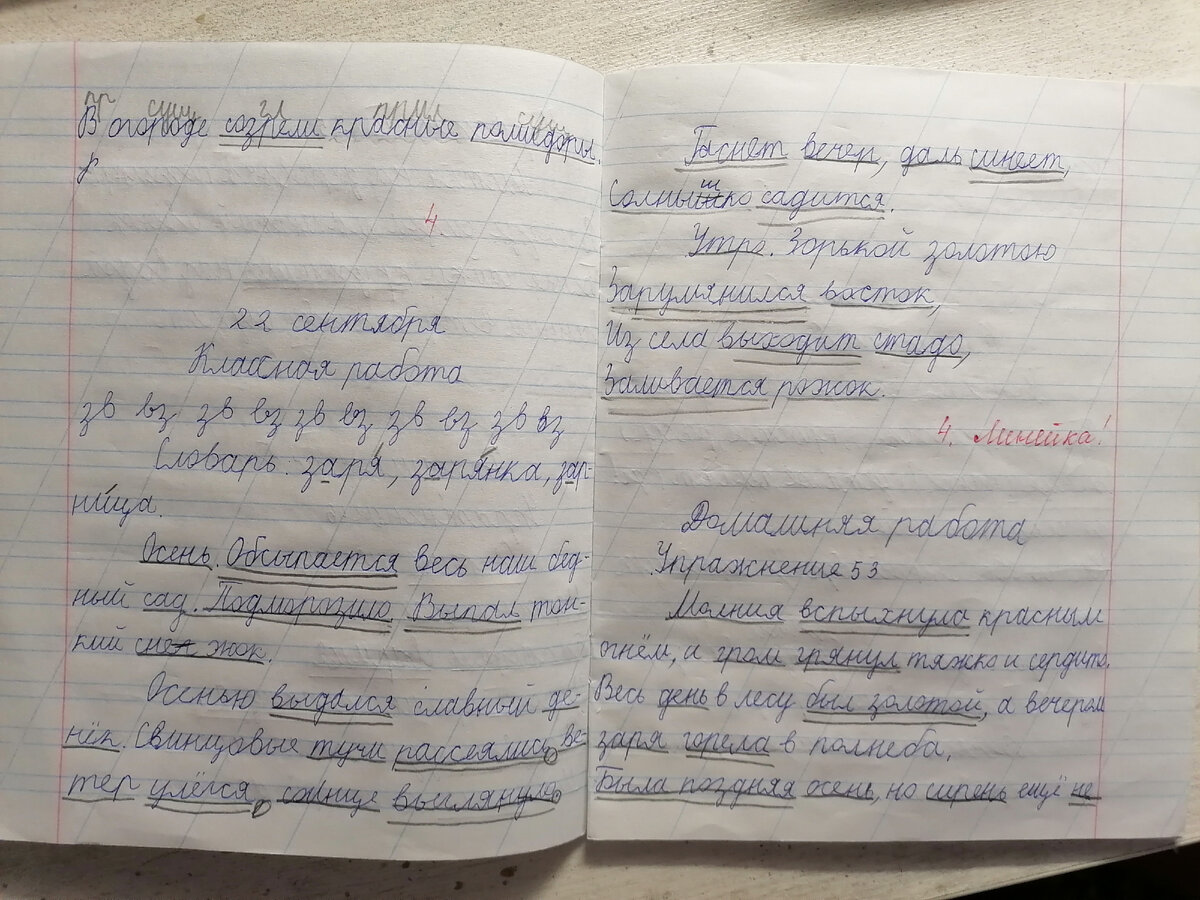 пр сущ гл прил сущ
В огороде созрели красные помидоры.
4.
22 сентября
Классная работа
зв вз зв вз зв вз зв вз зв вз
Словарь: заря́, заря́нка, зар-
ни́ца.
Осень. Обсыпается весь наш бед-
ный сад. Подморозило. Выпал тон-
кий снежок.
Осенью выдался славный де-
нёк. Свинцовые тучи рассеялись, ве-
тер улёгся, солнце выглянуло.
Гаснет вечер, даль синеет,
Солнышко садится.
Утро. Зорькой золотою
Зарумянился восток,
Из села выходит стадо,
Заливается рожок.
4. Линейка!
Домашняя работа
Упражнение 53
Молния вспыхнула красным
огнём, и гром грянул тяжко и сердито.
Весь день в лесу был золотой, а вечером
заря горела в полнеба.
Была поздняя осень, но сирень ещё не